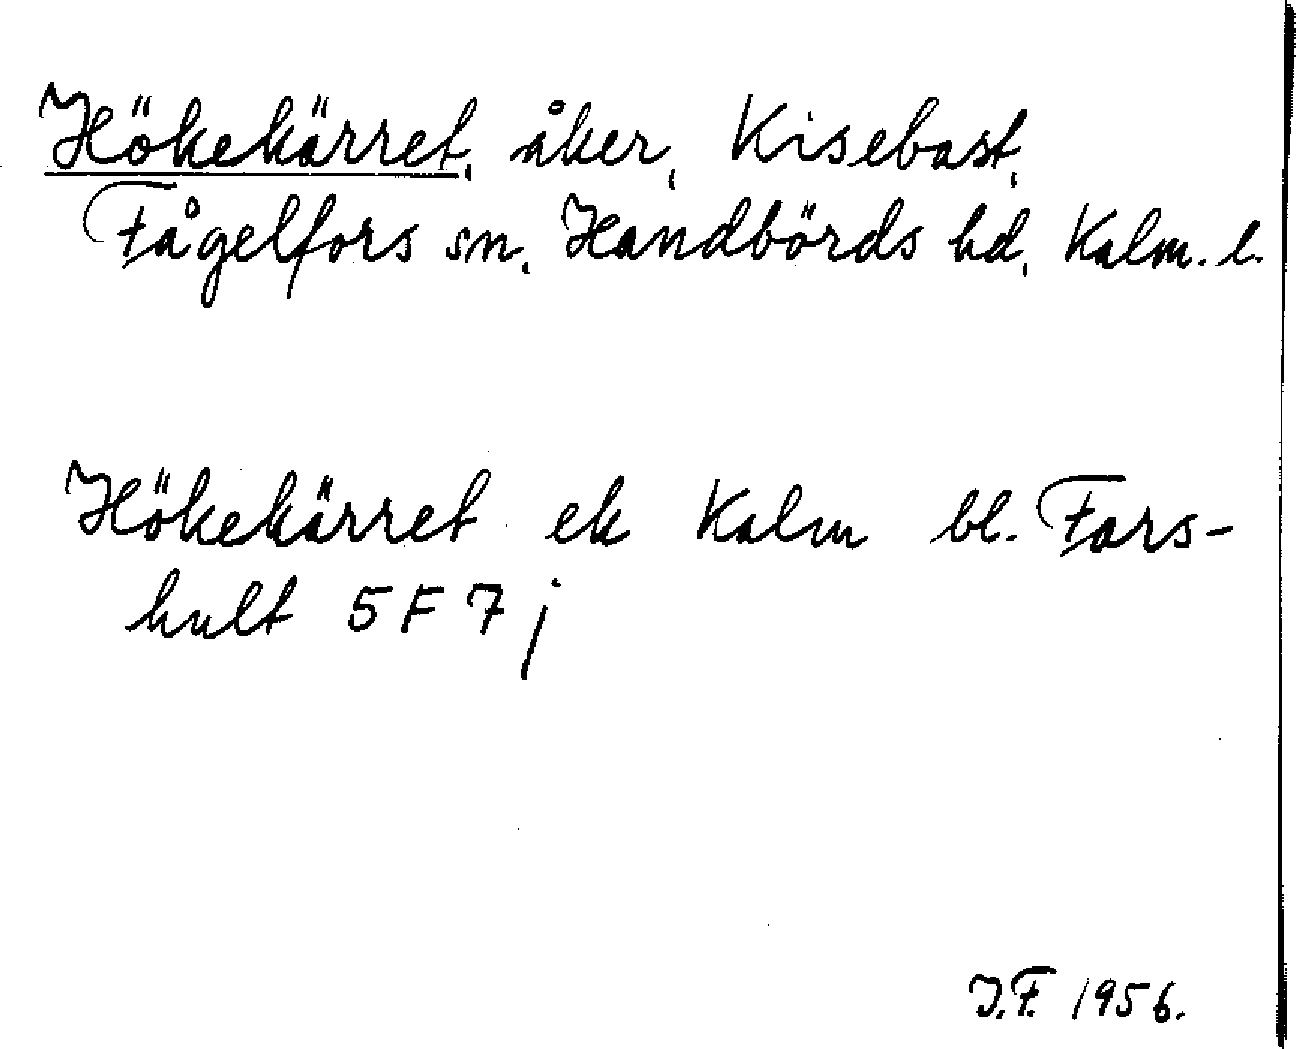 Hökekärret, åker, Kisebast,
Fågelfors sn, Handbörds hd, Kalm. l.
Hökekärret ek Kalm bl. Fors-
hult 5F7j
J.F. 1956.